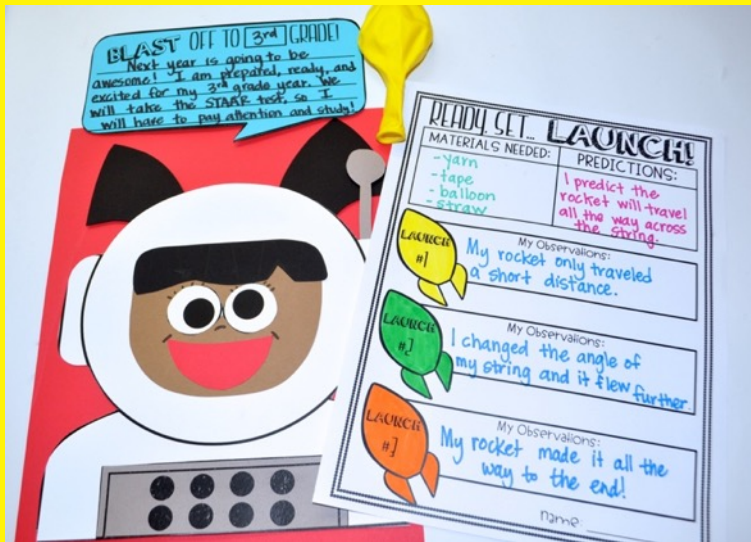 BLAST OFF TO 3rd GRADE!
Next year is going to be
awesome! I am prepared, ready, and
excited for my 3rd grade year. We
will take the STAAR test, so I
will have to pay attention and study!
READY, SET... LAUNCH!
MATERIALS NEEDED:
-yarn
-tape
-balloon
-straw
PREDICTIONS:
I predict the
rocket will travel
all the way across
the string.
LAUNCH
#1
My Observations:
My rocket only traveled
a short distance.
LAUNCH
#2
My Observations:
I changed the angle of
my string and it flew further.
LAUNCH
#3
My Observations:
My rocket made it all the
way to the end!
name: